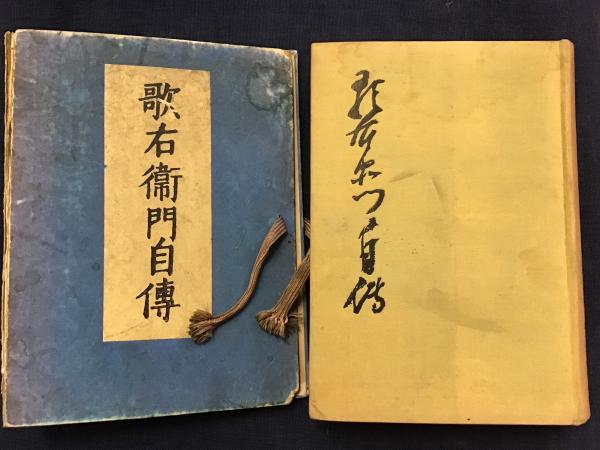 歌右衞門自傳
歌右衞門自傳